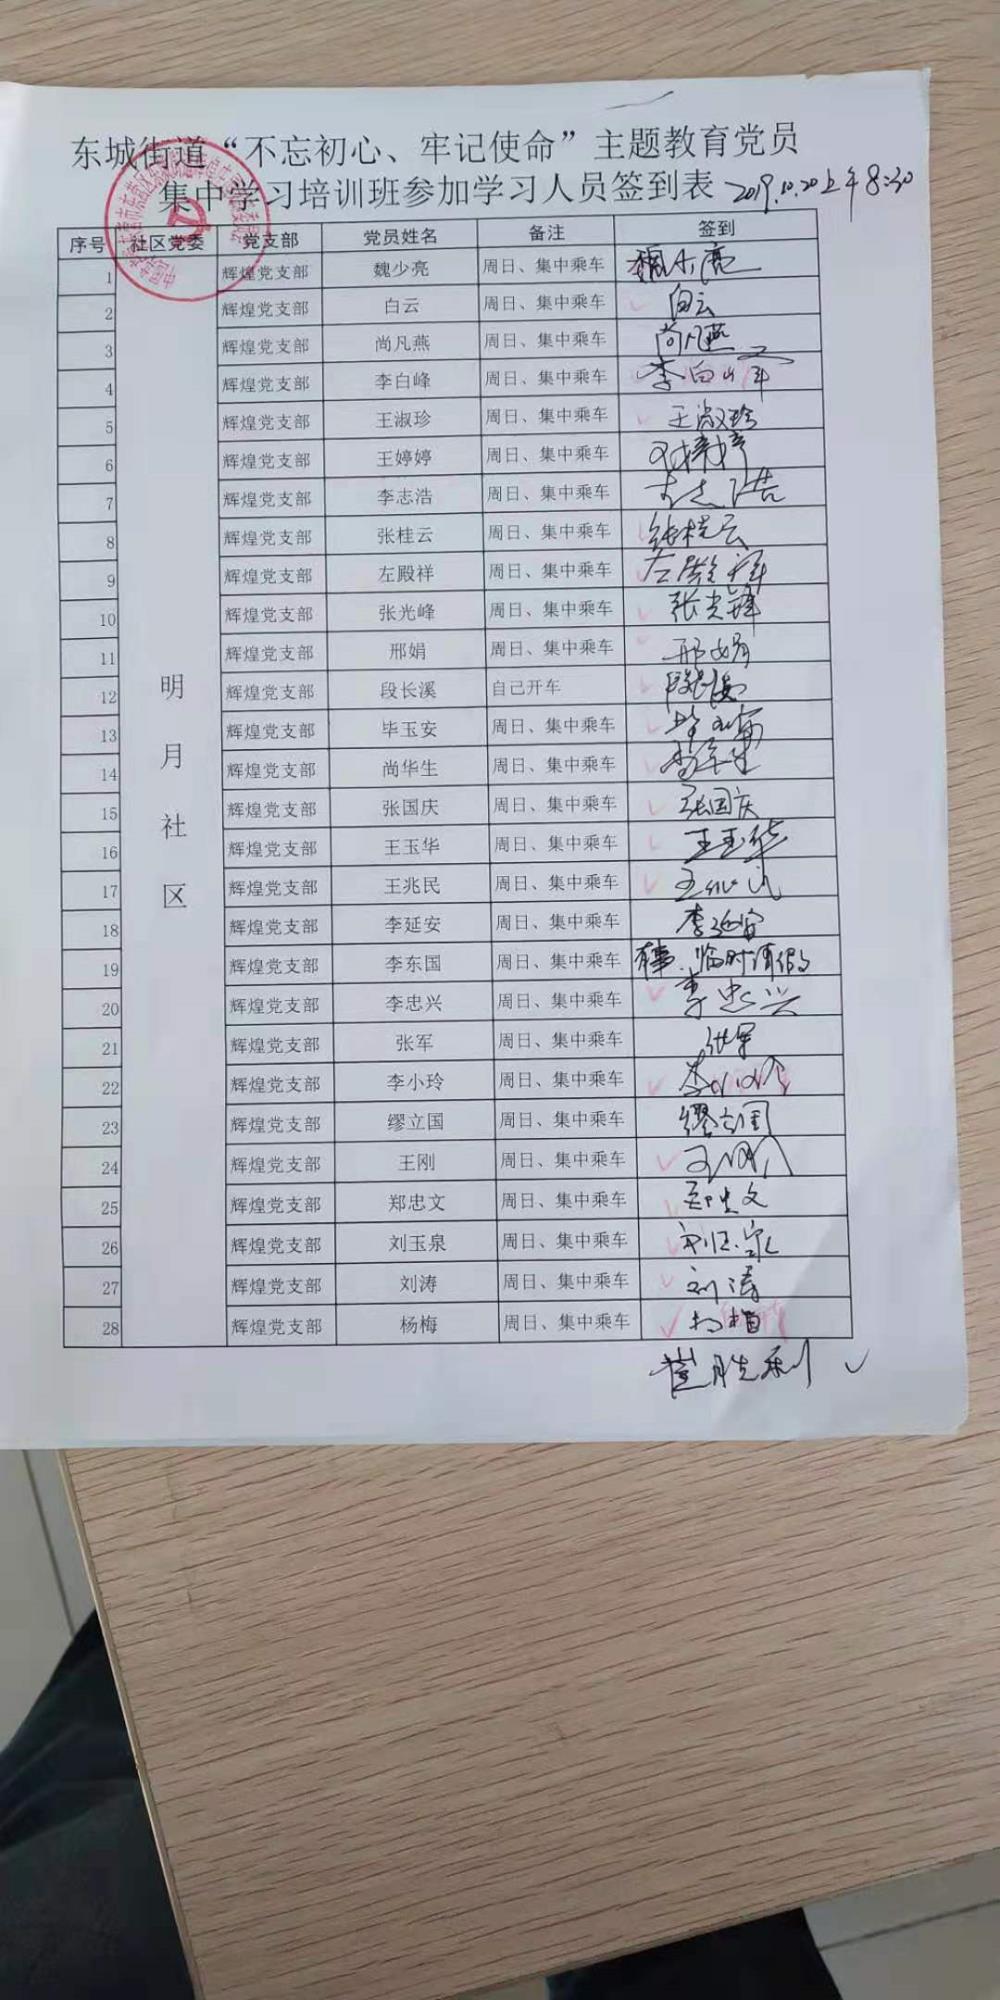 东城街道“不忘初心、牢记使命”主题教育党员
集中学习培训班参加学习人员签到表 2019.10.20上午8:30
序号 社区党委 党支部 党员姓名 备注 签到
明月社区
1 辉煌党支部 魏少亮 周日、集中乘车 魏少亮
2 辉煌党支部 白云 周日、集中乘车 白云
3 辉煌党支部 尚凡燕 周日、集中乘车 尚凡燕
4 辉煌党支部 李白峰 周日、集中乘车 李白峰
5 辉煌党支部 王淑珍 周日、集中乘车 王淑珍
6 辉煌党支部 王婷婷 周日、集中乘车
7 辉煌党支部 李志浩 周日、集中乘车 李志浩
8 辉煌党支部 张桂云 周日、集中乘车 张桂云
9 辉煌党支部 左殿祥 周日、集中乘车 左殿祥
10 辉煌党支部 张光峰 周日、集中乘车 张光锋
11 辉煌党支部 邢娟 周日、集中乘车 邢娟
12 辉煌党支部 段长溪 自己开车 段长溪
13 辉煌党支部 毕玉安 周日、集中乘车
14 辉煌党支部 尚华生 周日、集中乘车 尚华生
15 辉煌党支部 张国庆 周日、集中乘车 张国庆
16 辉煌党支部 王玉华 周日、集中乘车 王玉华
17 辉煌党支部 王兆民 周日、集中乘车 王兆民
18 辉煌党支部 李延安 周日、集中乘车 李延安
19 辉煌党支部 李东国 周日、集中乘车 有事、临时请假
20 辉煌党支部 李忠兴 周日、集中乘车 李忠兴
21 辉煌党支部 张军 周日、集中乘车 张军
22 辉煌党支部 李小玲 周日、集中乘车 李小玲
23 辉煌党支部 缪立国 周日、集中乘车 缪立国
24 辉煌党支部 王刚 周日、集中乘车 王刚
25 辉煌党支部 郑忠文 周日、集中乘车 郑忠文
26 辉煌党支部 刘玉泉 周日、集中乘车 刘玉泉
27 辉煌党支部 刘涛 周日、集中乘车 刘涛
28 辉煌党支部 杨梅 周日、集中乘车 杨梅
崔胜利 ✓